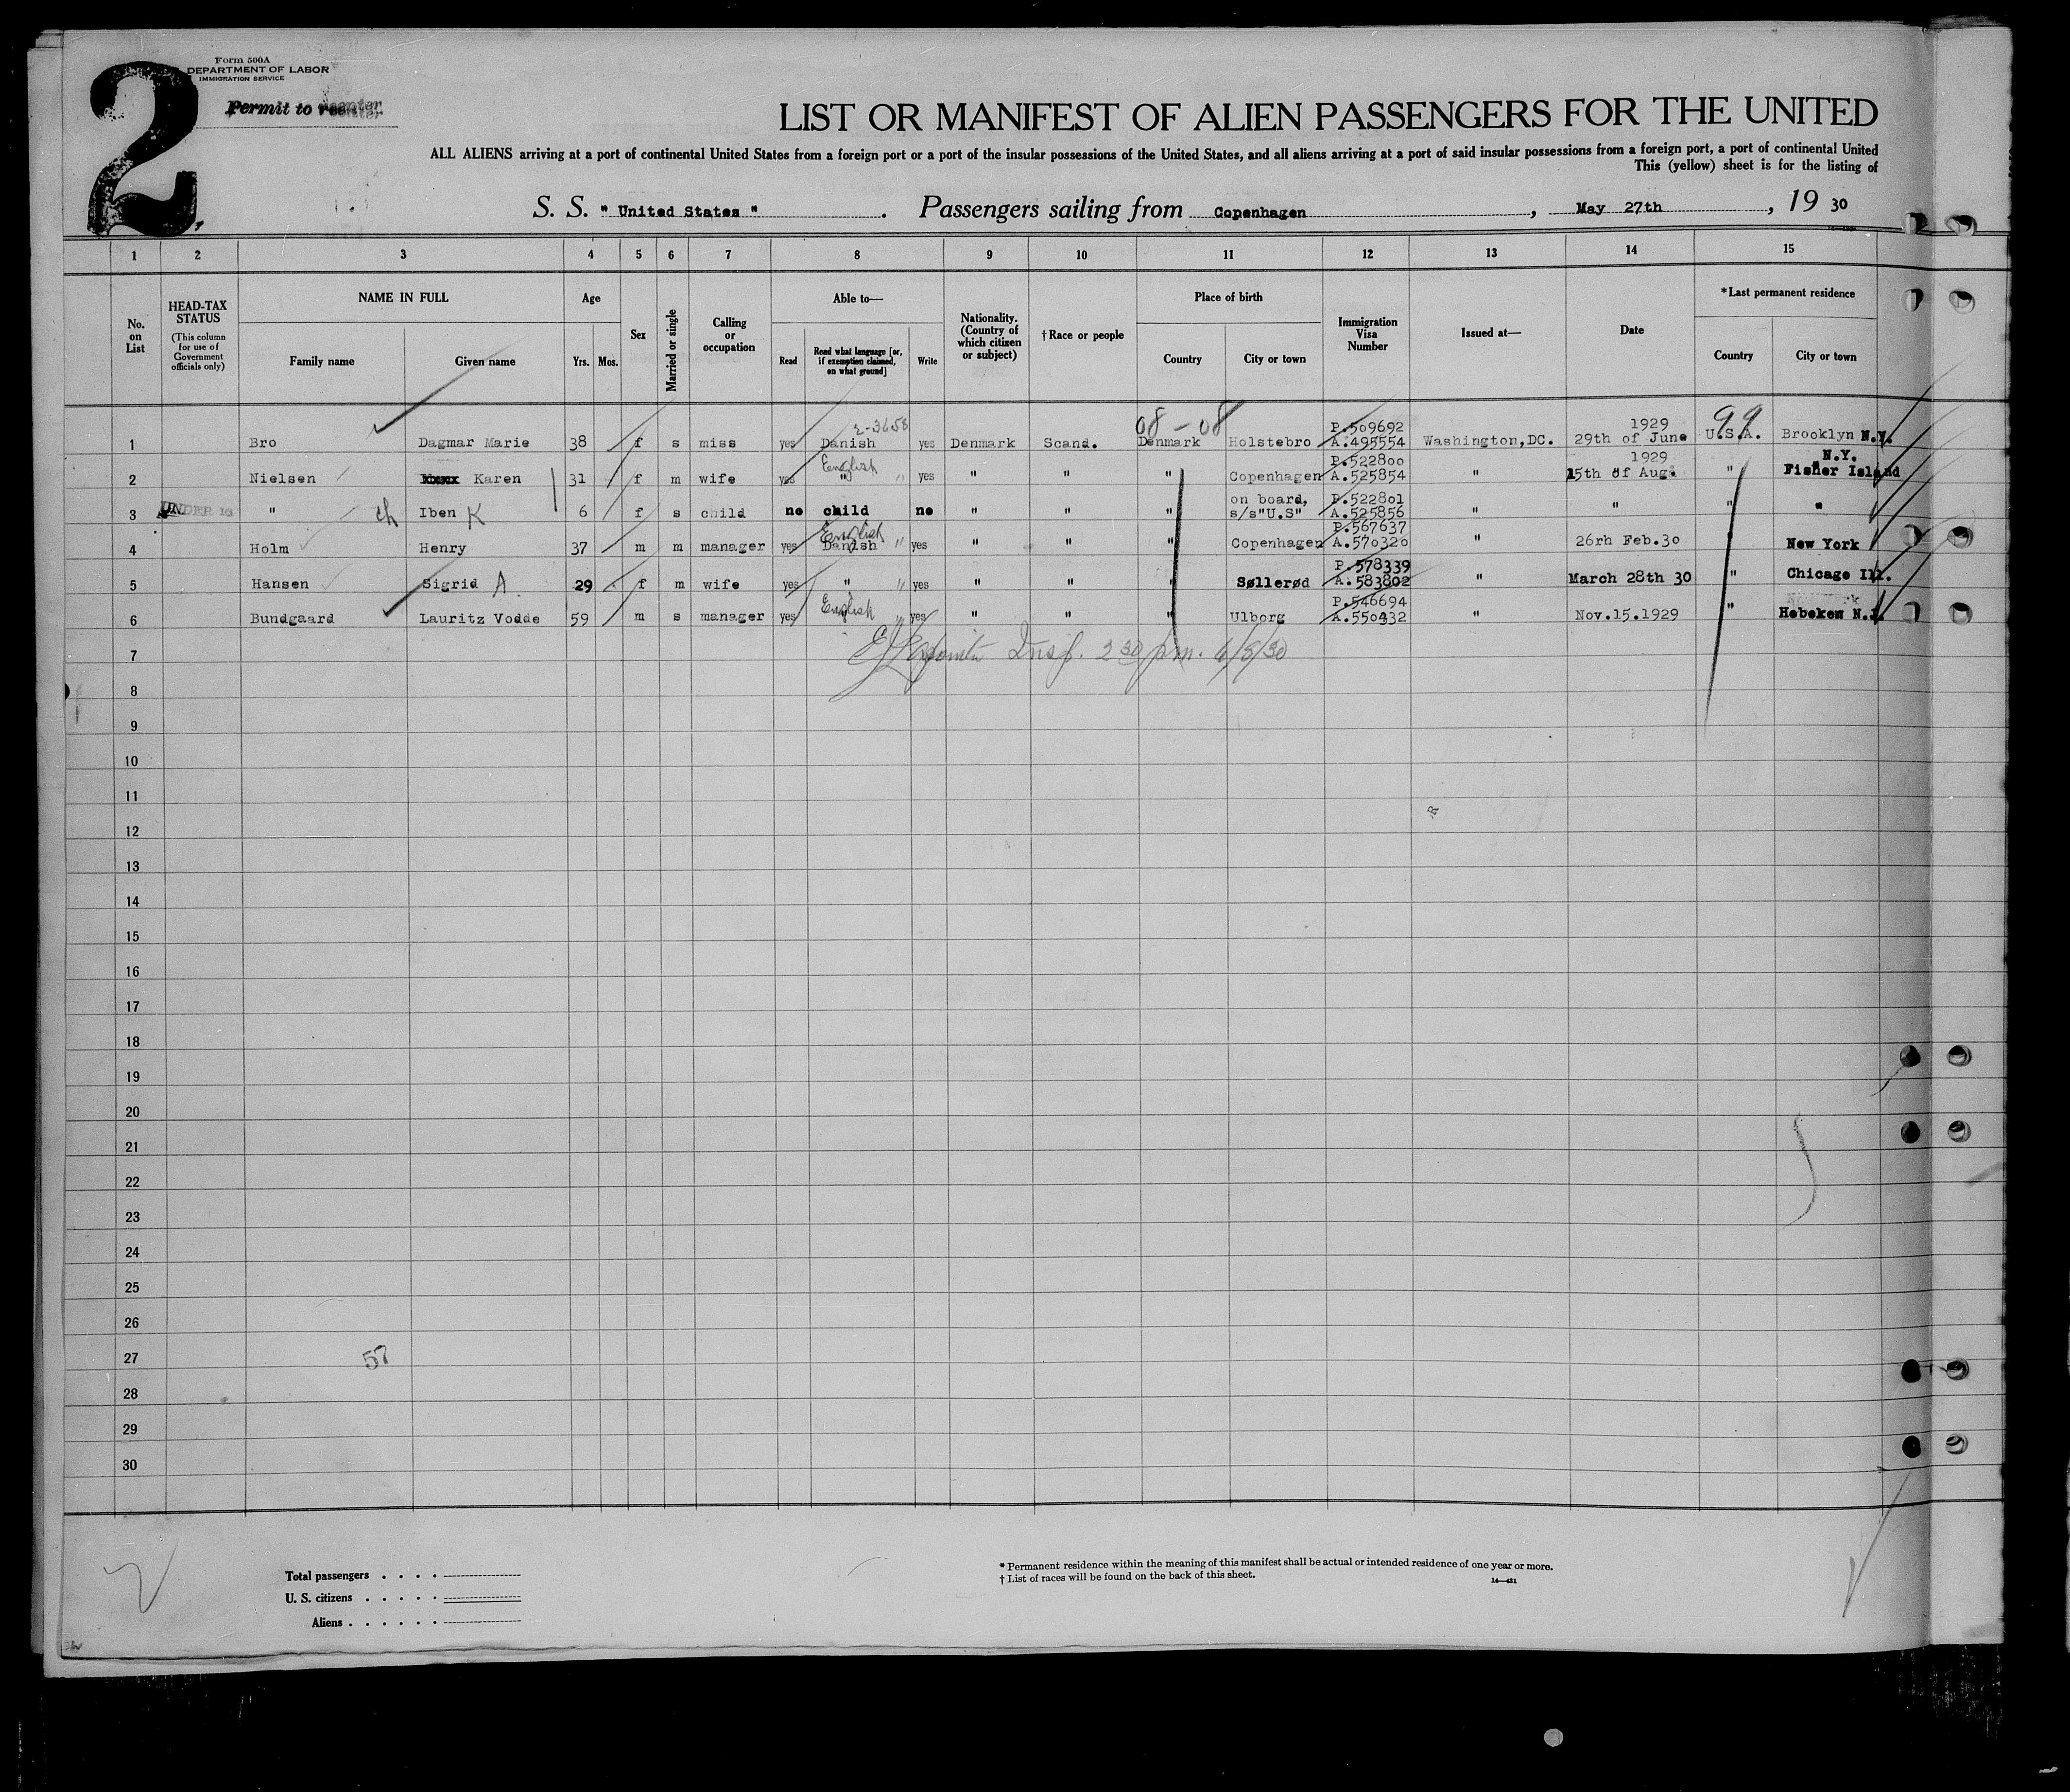 2
Form 500A
DEPARTMENT OF LABOR
IMMIGRATION SERVICE
Permit to reenter
LIST OR MANIFEST OF ALIEN PASSENGERS FOR THE UNITED
ALL ALIENS arriving at a port of continental United States from a foreign port or a port of the insular possessions of the United States, and all aliens arriving at a port of said insular possessions from a foreign port, a port of continental United
This (yellow) sheet is for the listing of
S. S. " United States " . Passengers sailing from Copenhagen , May 27th , 19 30
1 2 3 4 5 6 7 8 9 10 11 12 13 14 15
No. on List
HEAD-TAX STATUS
(This column for use of Government officials only)
NAME IN FULL
Family name Given name
Age
Yrs. Mos.
Sex
Married or single
Calling or occupation
Able to—
Read
Read what language [or, if exemption claimed, on what ground]
Write
Nationality. (Country of which citizen or subject)
†Race or people
Place of birth
Country City or town
Immigration Visa Number
Issued at—
Date
*Last permanent residence
Country City or town
2-3658 08 - 08 P.509692 1929 99
1 Bro Dagmar Marie 38 f s miss yes Danish yes Denmark Scand. Denmark Holstebro A.495554 Washington,DC. 29th of June U.S.A. Brooklyn N.Y.
English P.522800 1929 N.Y.
2 Nielsen Karen 31 f m wife yes " " yes " " " Copenhagen A.525854 " 15th of Aug. " Fisher Island
on board, P.522801
3 UNDER 16 " ch Iben K 6 f s child no child no " " " s/s"U.S" A.525856 " " " "
English P.567637
4 Holm Henry 37 m m manager yes Danish " yes " " " Copenhagen A.570320 " 26rh Feb.30 " New York
P.578339
5 Hansen Sigrid A. 29 f m wife yes " " yes " " " Søllerød A.583802 " March 28th 30 " Chicage Ill.
English P.546694
6 Bundgaard Lauritz Vodde 59 m s manager yes " " yes " " " Ulborg A.550432 " Nov.15.1929 " Hoboken N.J.
7 Insp. 2 30 p.m. 6/5/30
8
9
10
11
12
13
14
15
16
17
18
19
20
21
22
23
24
25
26
27 57
28
29
30
Total passengers . . . .
U. S. citizens . . . . .
Aliens . . . . . .
* Permanent residence within the meaning of this manifest shall be actual or intended residence of one year or more.
† List of races will be found on the back of this sheet.
14—431